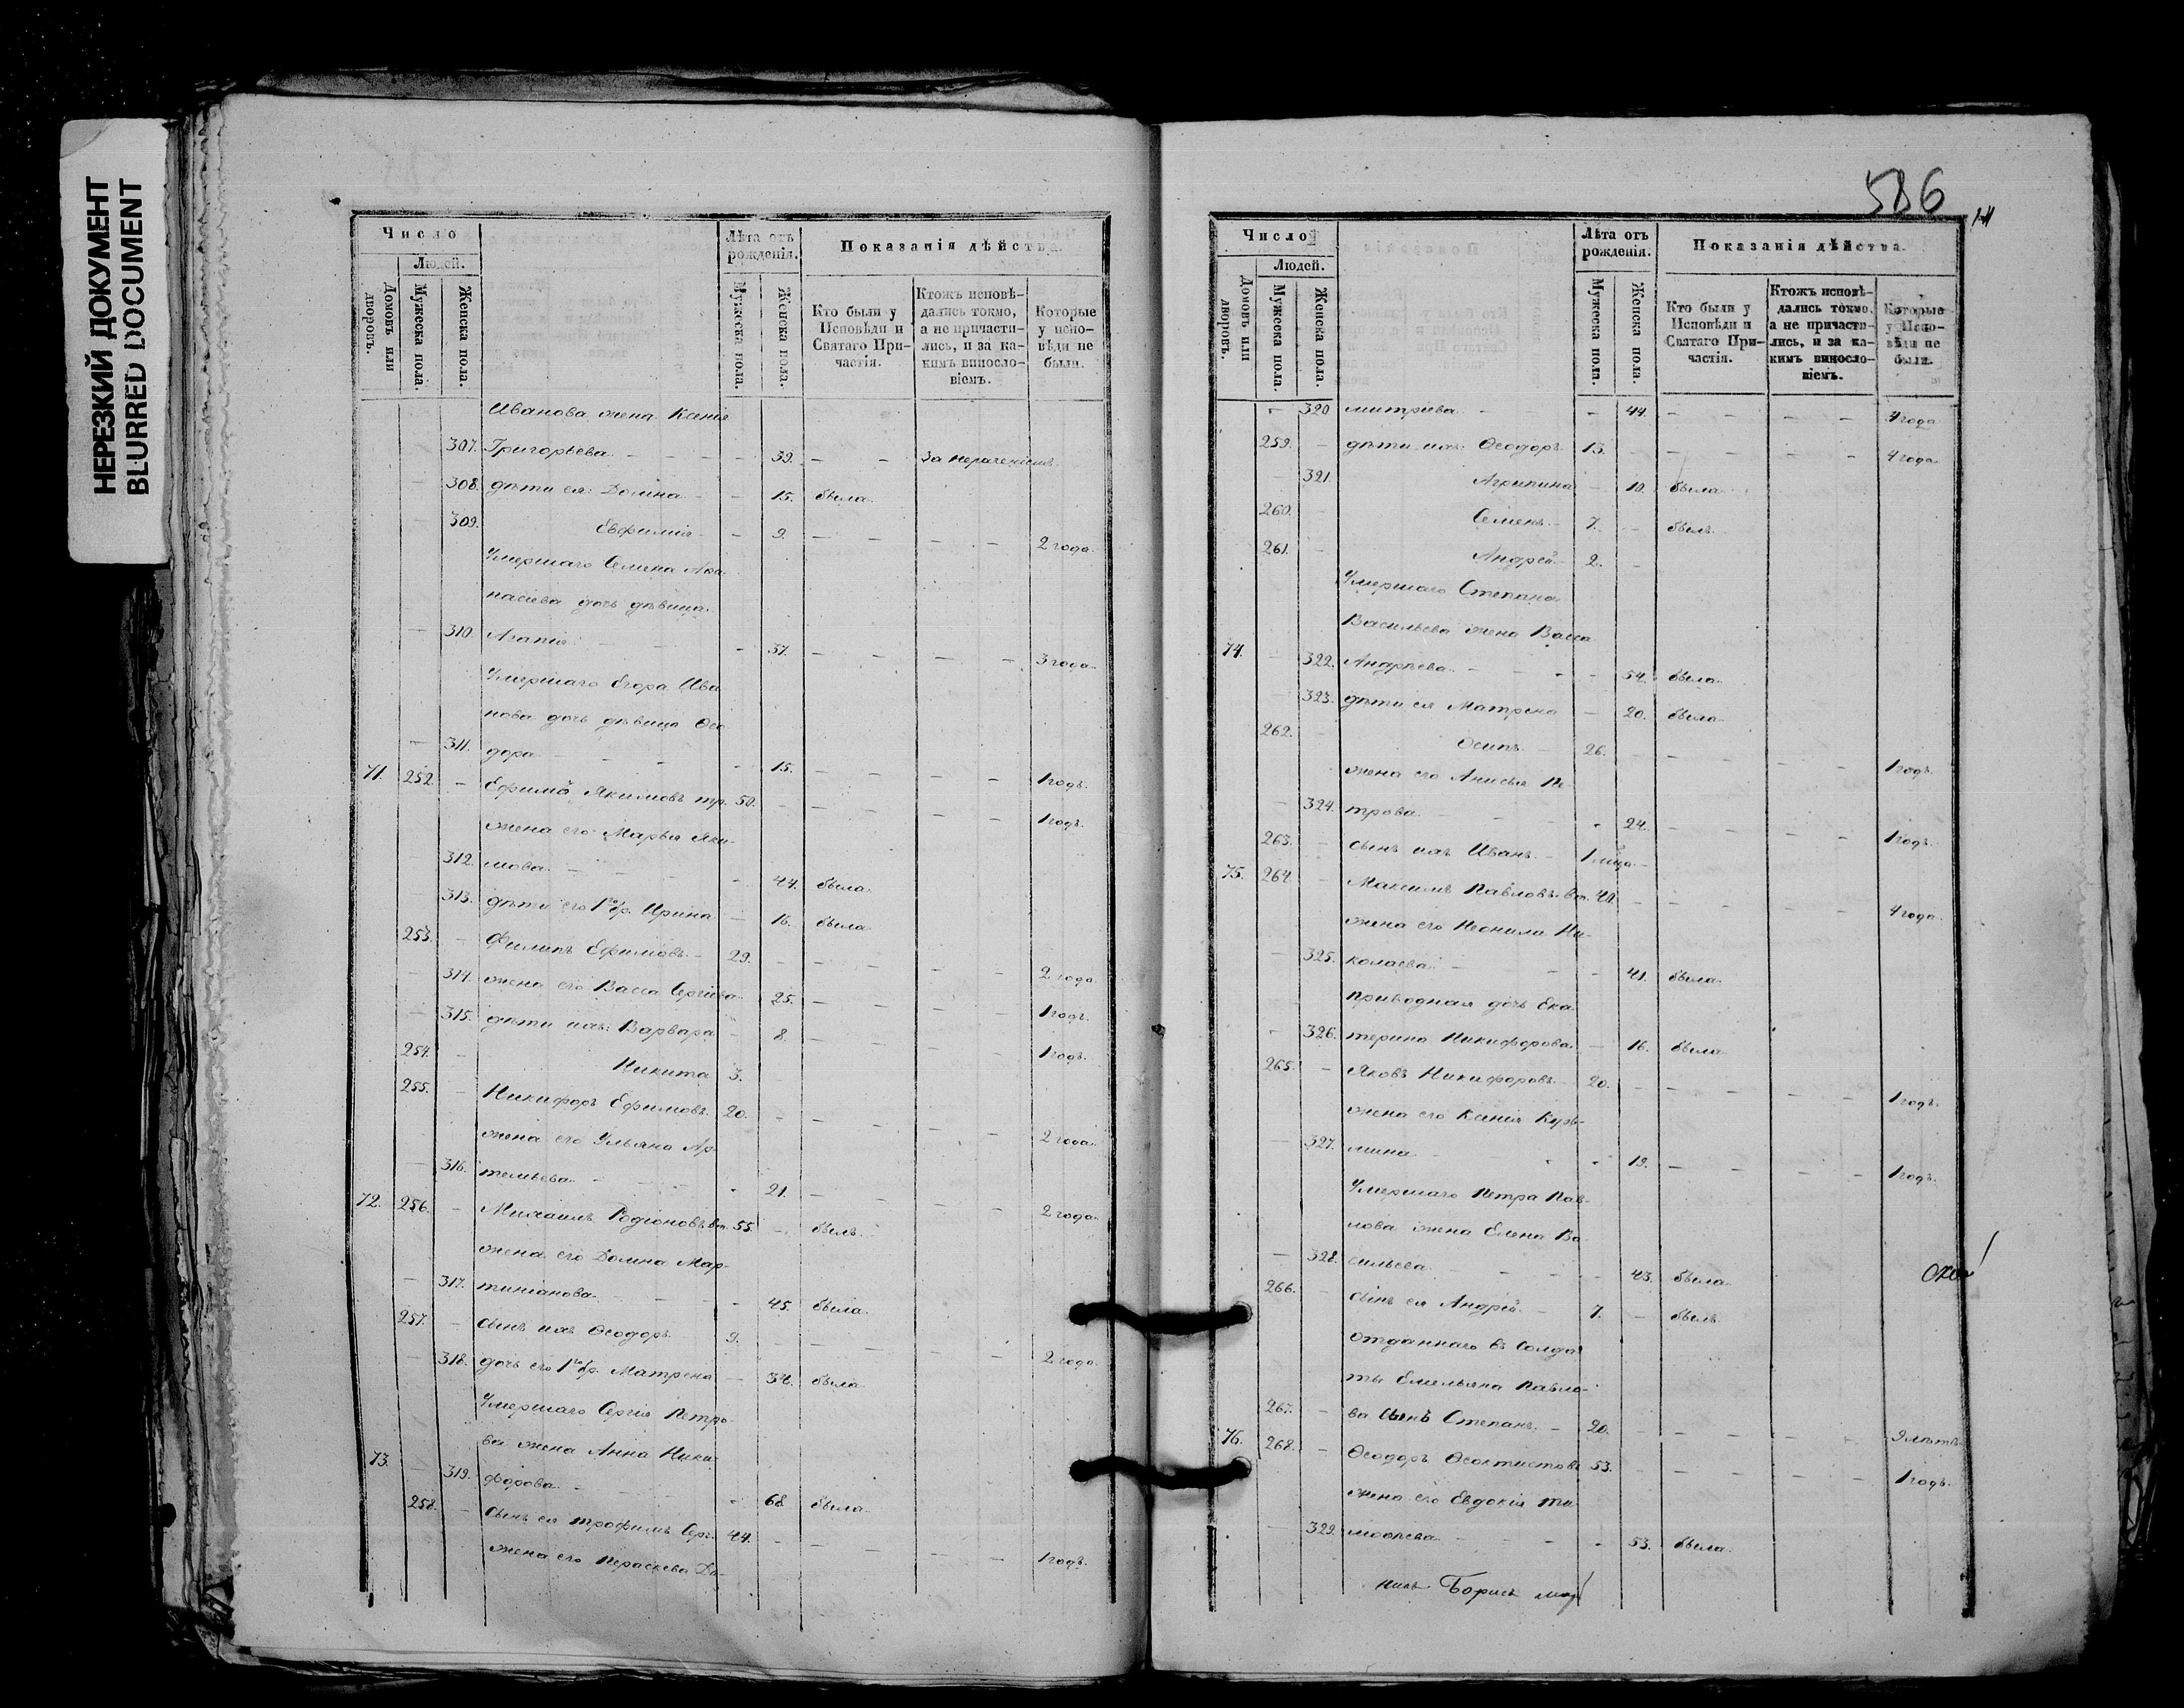 НЕРЕЗКИЙ ДОКУМЕНТ
BLURRED DOCUMENT
Число
Людей.
Домовъ или дворовъ.
Мужеска пола.
Женска пола.
Лѣта отъ рожденія.
Мужеска пола.
Женска пола.
Показанія дѣйства.
Кто были у Исповѣди и Святаго Причастія.
Ктожъ исповѣдались токмо, а не причастились, и за какимъ винословіемъ.
Которые у исповѣди не были.
Иванова жена Ксенія
307. Григорьева - 39. - - За нераченіемъ
308. дѣти ея: Домна - 15. была
309. Евфимія - 9. - - - - 2 года
Умершаго Семена Аѳа-
насіева дочь дѣвица
310. Агапія - 37. - - - - 3 года
Умершаго Егора Ива
нова дочь дѣвица Ѳео
311. дора - 15. - - - - 1 годъ.
71. 252. - Ефимъ Якимовъ тр. 50. - - - - 1 годъ.
жена его Марья Яки-
312. мова - 44. была.
313. дѣти его 1го бр. Ирина - 16. была
253. - Филипъ Ефимовъ - 29. - - - - 2 года
314. жена его Васса Сергіева 25. - - - 1 годъ.
315. дѣти ихъ: Варвара - 8. - - - - 1 годъ.
254. - Никита 3. -
255. - Никифоръ Ефимовъ 20. - - - - 2 года
жена его Ульяна Ар-
316. темьева - 21. - - - - 2 года
72. 256. - Михаилъ Родіоновъ вт. 55. - былъ
жена его Домна Мар-
317. тиніанова - 45. была.
257. - сынъ ихъ Ѳеодоръ 9. - - - - 2 года
318. дочь его 1го бр. Матрена - была
Умершаго Сергія Петро-
ва жена Анна Ники-
73. - 319. форова - 68 была
258. - сынъ ея Трофимъ Серг. 44. - - - - 1 годъ.
жена его Параскева Ди-
586
Число
Людей.
Домовъ или дворовъ.
Мужеска пола.
Женска пола.
Лѣта отъ рожденія.
Мужеска пола.
Женска пола.
Показанія дѣйства.
Кто были у Исповѣди и Святаго Причастія.
Ктожъ исповѣдались токмо, а не причастились, и за какимъ винословіемъ.
Которые у Исповѣди не были.
- 320 митріева - - 44. - - - - 4 года
259. - дѣти ихъ: Ѳеодоръ 13. - - - - 4 года
321. Агрипина - 10. была
260. - Семенъ 7. - былъ.
261. - Андрей 2. -
Умершаго Степана
Васильева жена Васса
74. - 322. Андреева - 54. была
323. дѣти ея Матрена - 20. была
262. - Осипъ - 26. - - - - 1 годъ.
жена его Анисья Пе-
324. трова - 24. - - - - 1 годъ.
263. - сынъ ихъ Иванъ -
75. 264 - Максимъ Павловъ вт. - - - - 4 года.
жена его Неонила Ни-
325. колаева - 41. была
приводная дочь Ека-
326. терина Никифорова - 16. была
265. - Яковъ Никифоровъ 20. - - - - 1 годъ.
жена его Ксенія Кузь-
327. мина - 19. - - - - 1 годъ.
Умершаго Петра Пав-
лова жена Елена Ва
328. сильева - 43. была
266. - сынъ ея Андрей - 7. - былъ
отданнаго въ Солда-
ты Емельяна Павло-
267. - ва сынъ Степанъ - 20. - - - - 9 лѣтъ
76. 268. - Ѳеодоръ Ѳеоктистовъ 53. - - - - 1 годъ.
жена его Евдокія Ти-
329. моѳеева - 53. была
Борисъ